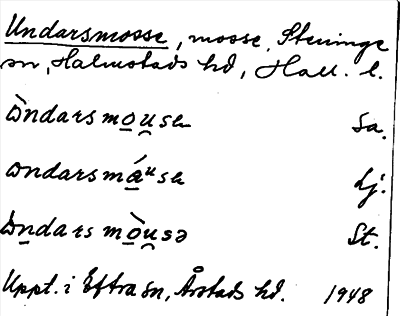 Undarsmosse, mosse, Steninge
sn, Halmstads hd, Hall. l.
ɷ̀ndars mo̲u̯sɐ Sa.
ɷndarsmá̲ᵘsɐ Lj.
ɷ̀ndars mò̲u̯sə St.
Uppt. i Eftra sn, Årstads hd. 1948